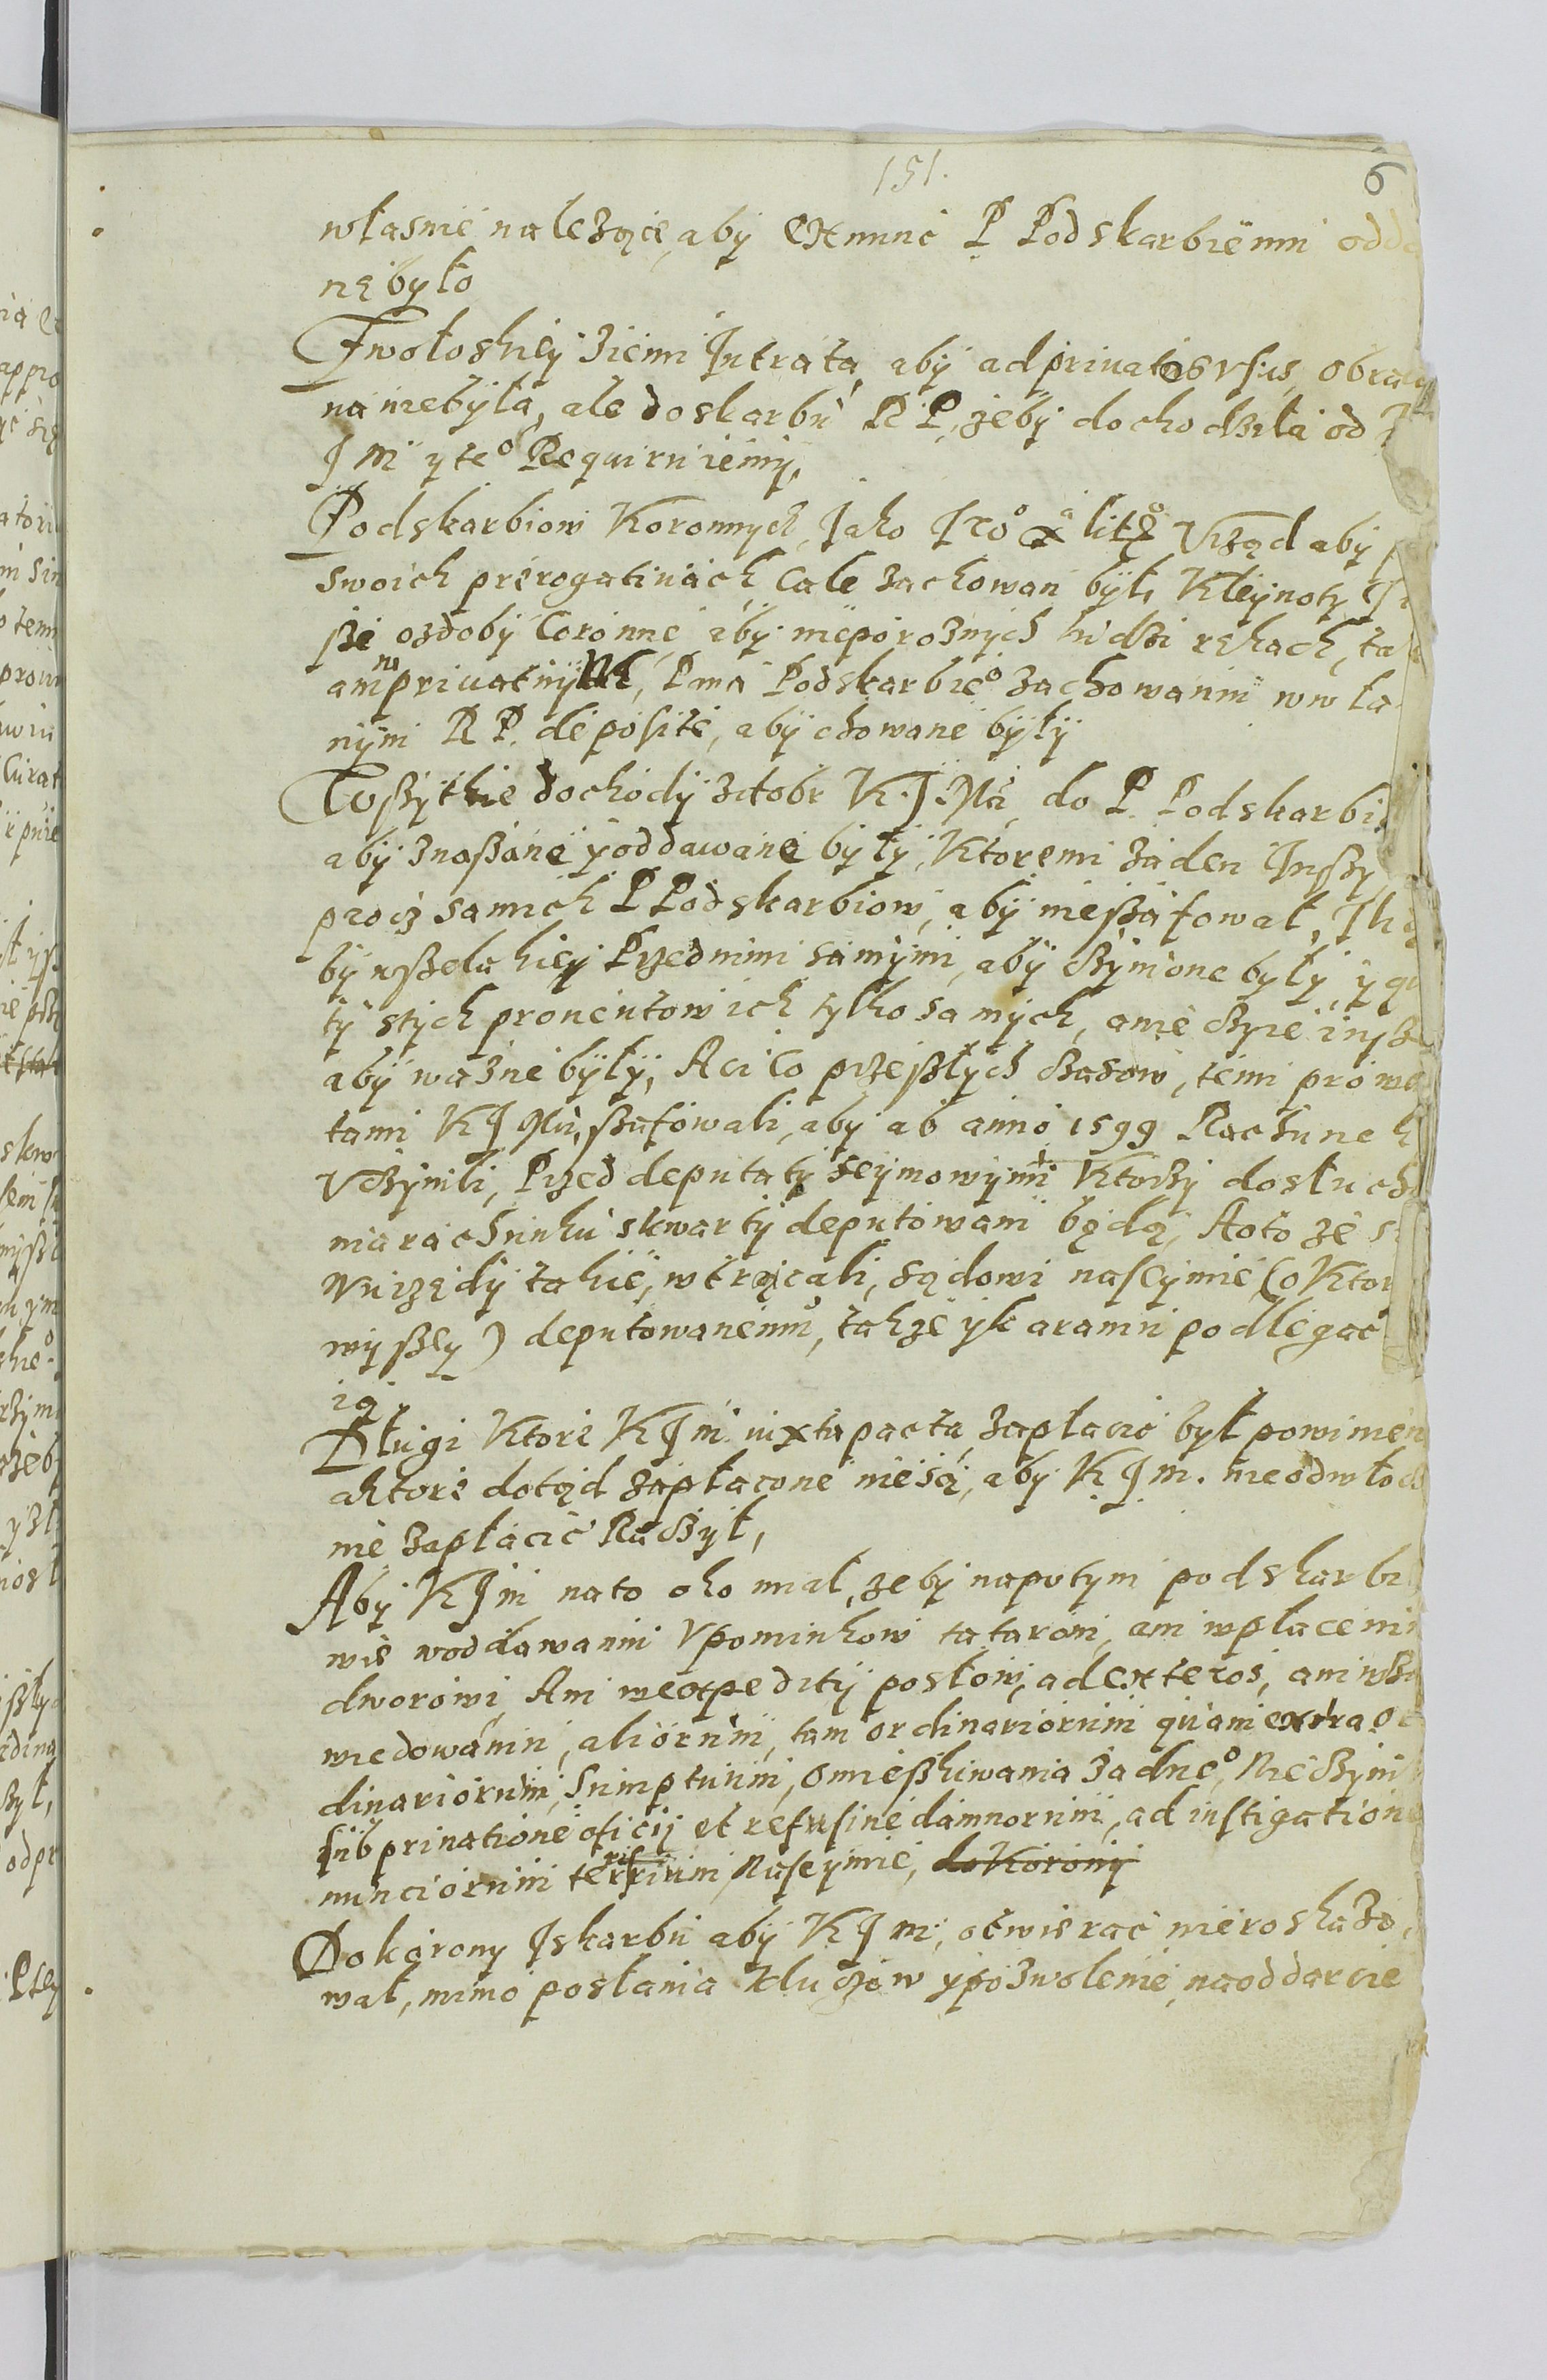 151.
6
własnie należące, aby ex nunc P. Podskarbiemu odda
nę było
Zwołoskiey ziemi Intrata, aby ad privatos usus, obraca
na niebyła, ale do skarbu R P. żeby dochodziła od
J M y te° Requiruiemy,
Podskarbiow Koronnych, Jako Urząd aby
swoich prerogatiuach Cale zachowan był, Kleynoty
sze ozdoby Coronne, aby nie po rożnych ludzi rękach, ta
ani w privatnych, Pana Podskarbie° zachowaniu w wła
nym R P. deposite, aby chowane były
Wszytkie dochody z dobr K. J. Mci, do P. Podskarbi
aby znaszane y oddawane były, Ktoremi żaden Inszy
procz samich P Podskarbiow, aby nie szafował,
by wszelakiey Przed nimi samymi, aby czynione były, y
ty s tych prouentow ich tylko samych, a nie czyie insze
aby ważne były, A ci Co przeszłych Czasow, temi prowe
tami K J Mci, szafowali, aby ab anno 1599 Rachunek
Vczynili, Przed deputaty Seymowymi Ktorzy do słucha
nia rachunku s kwarty deputowani będą, A oto że s
w urzędy takie, wtrącali, sądowi na seymie (o Ktor
wyszey) deputowanemu, także y karaniu podlegać
ią.
Długi Ktore K J M. iuxta pacta, zapłacic był powinien
a ktore dotąd zapłacone nie są, aby K. J. M. nieodwłocz
nie zapłacić Raczył,
Aby K J M na to oko miał, żeby na potym podskarbi
wie w oddawaniu Vpominkow tatarom, ani w płaceniu
dworowi, Ani w expeditij posłow, ad exteros, ani
wiedowaniu, aliorum, tam ordinariorum quam extraor
dinariorum, Sumptuum, omieszkiwania żadne°, Nie czyni
sub priuatione oficij et refusine damnorum, ad instigatione
nunciorum terrium, Na seymie, do Korony
Do korony J skarbu aby K J M, otwierac nie roskazo
wał, mimo posłania kluczow y pozwolenie, na oddarcie